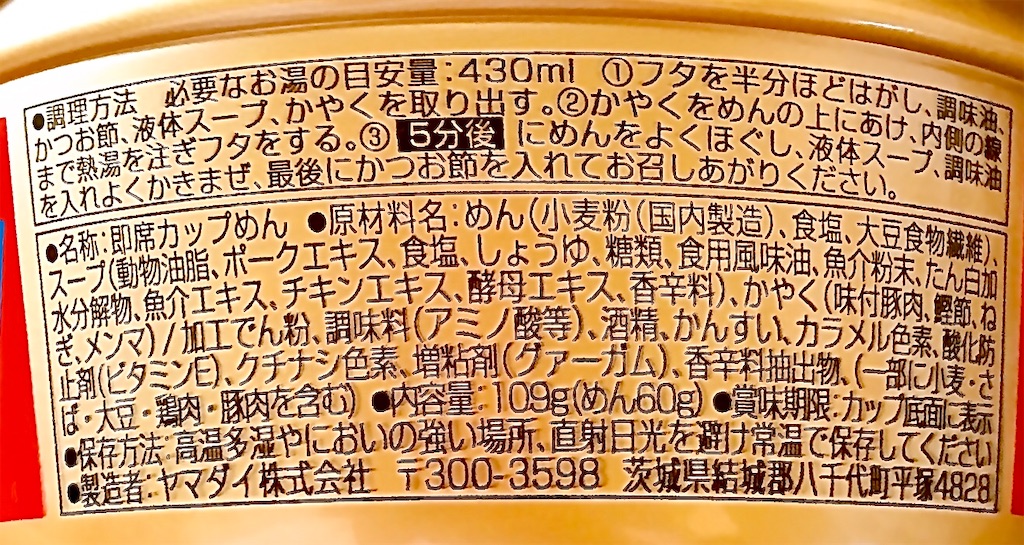 ●調理方法 必要なお湯の目安量:430ml ①フタを半分ほどはがし、調味油、
かつお節、液体スープ、かやくを取り出す。②かやくをめんの上にあけ、内側の線
まで熱湯を注ぎフタをする。③ 5分後 にめんをよくほぐし、液体スープ、調味油
を入れよくかきまぜ、最後にかつお節を入れてお召しあがりください。
●名称:即席カップめん ●原材料名:めん(小麦粉(国内製造)、食塩、大豆食物繊維)、
スープ(動物油脂、ポークエキス、食塩、しょうゆ、糖類、食用風味油、魚介粉末、たん白加
水分解物、魚介エキス、チキンエキス、酵母エキス、香辛料)、かやく(味付豚肉、鰹節、ね
ぎ、メンマ)/加工でん粉、調味料(アミノ酸等)、酒精、かんすい、カラメル色素、酸化防
止剤(ビタミンE)、クチナシ色素、増粘剤(グァーガム)、香辛料抽出物、(一部に小麦・さ
ば・大豆・鶏肉・豚肉を含む) ●内容量:109g(めん60g) ●賞味期限:カップ底面に表示
●保存方法:高温多湿やにおいの強い場所、直射日光を避け常温で保存してください
●製造者:ヤマダイ株式会社 〒300-3598 茨城県結城郡八千代町平塚4828